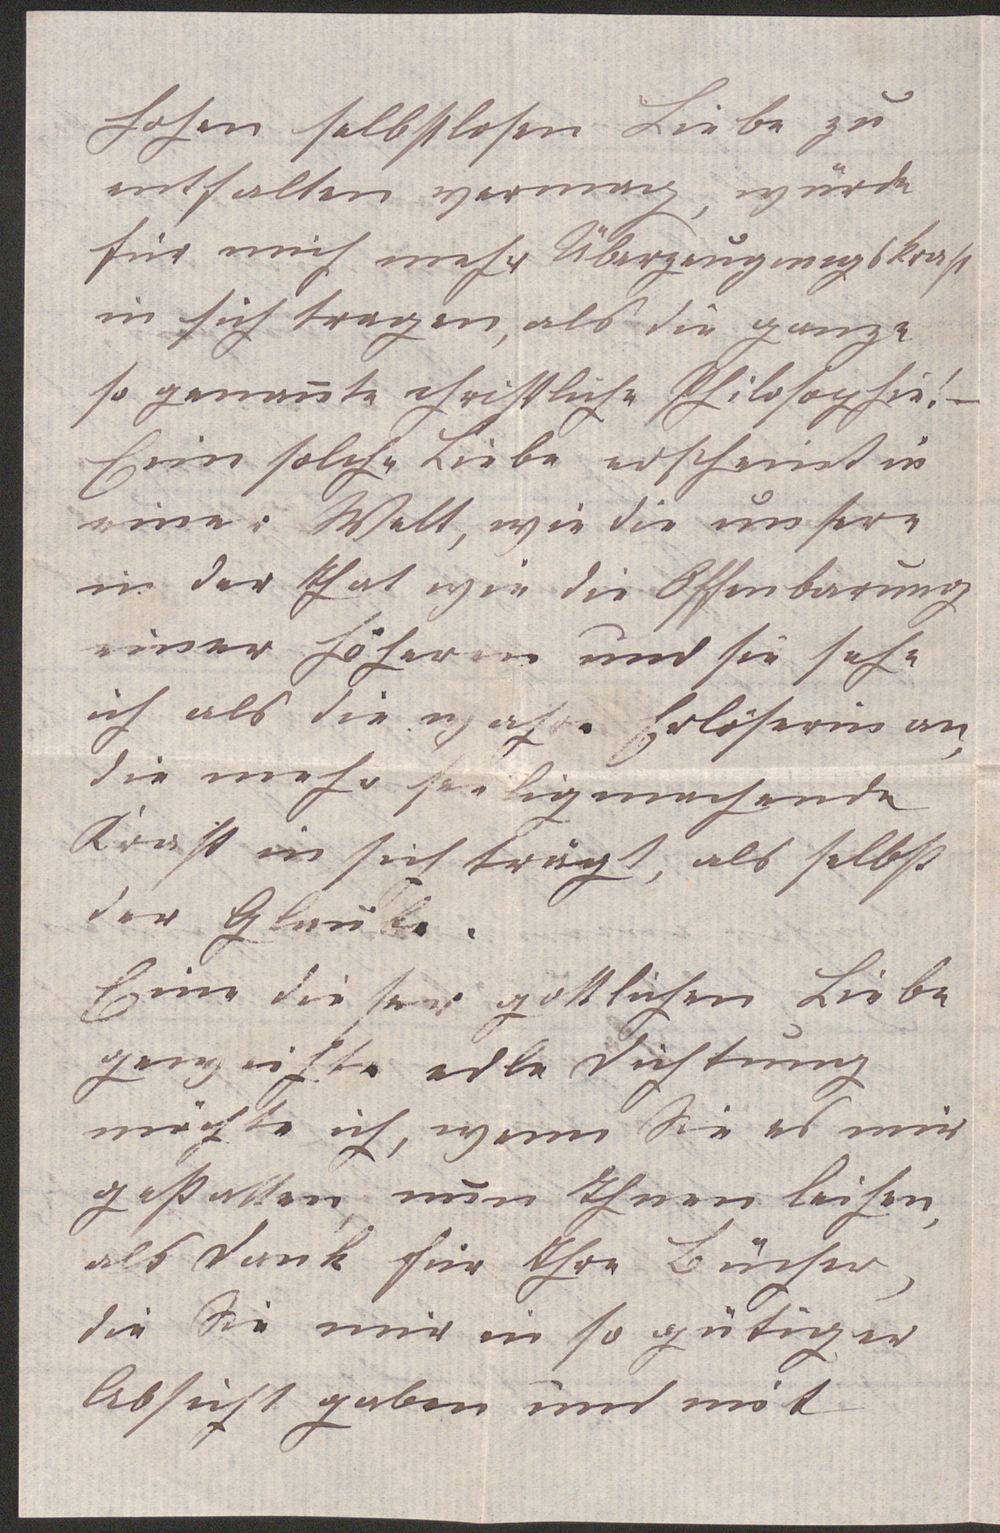 hohen selbstlosen Liebe zu
entfalten vermag, würde
für mich mehr Überzeugungskraft
in sich tragen, als die ganze
so genannte christliche Philosophie! –
Eine solche Liebe erscheint in
einer Welt, wie die unsere
in der That wie die Offenbarung
einer höheren und sie sehe
ich als die wahre Erlöserin an,
die mehr seeligmachende
Kraft in sich trägt, als selbst
der Glaube.
Eine dieser göttlichen Liebe
geweihte edle Dichtung
möchte ich, wenn Sie es mir
gestatten, nun Ihnen leihen,
als Dank für Ihre Bücher,
die Sie mir in so gütiger
Absicht gaben und mit